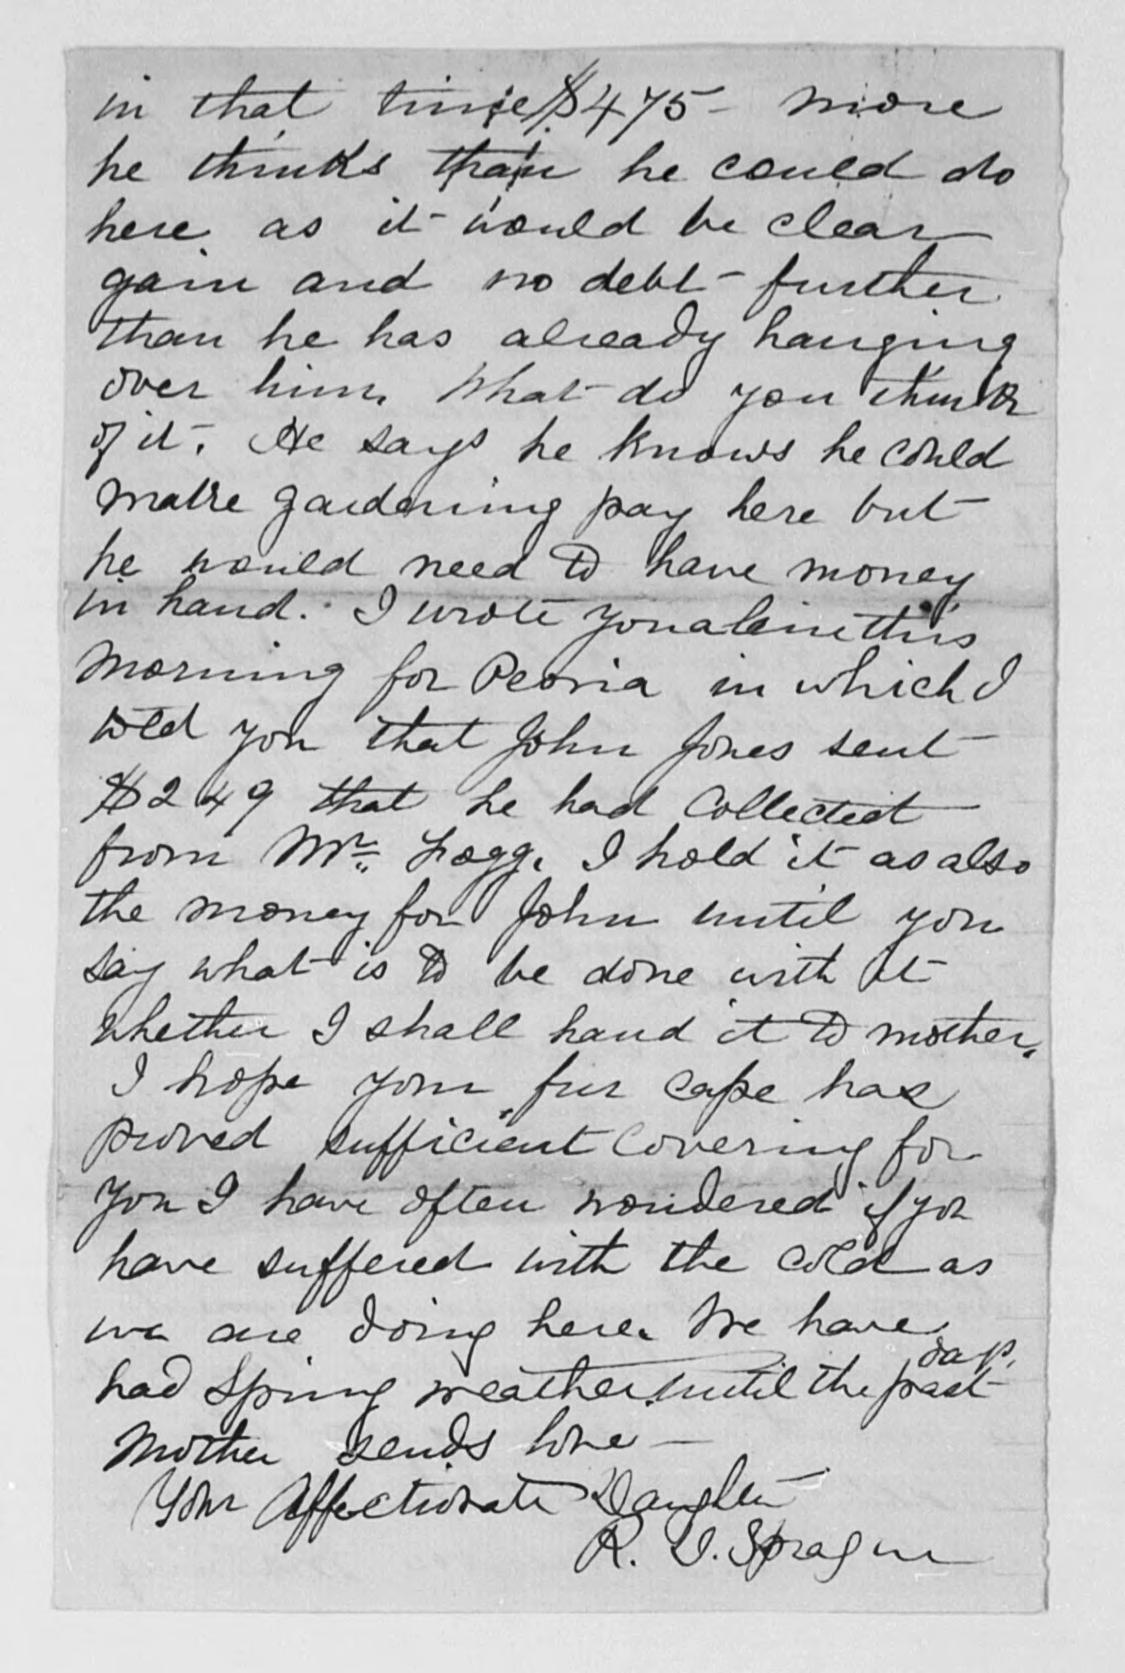 in that time $475 - more
he thinks than he could do
here as it would be clear
gain and no debt - further
than he has already hanging
over him. What do you think
of it. He says he knows he could
make gardening pay here but
he would need to have money
in hand. I wrote you a line this
morning for Peoria in which I
told you that John Jones sent
$249 that he had Collected
from Mr. Fogg. I hold it as also
the money for John until you
say what is to be done with it
whether I shall hand it to mother.
I hope your fur cape has
proved sufficient covering for
you I have often wondered if you
have suffered with the cold as
we are doing here. We have
had Spring weather until the past days.
Mother sends love -
Your Affectionate Daughter
R. D. Sprague